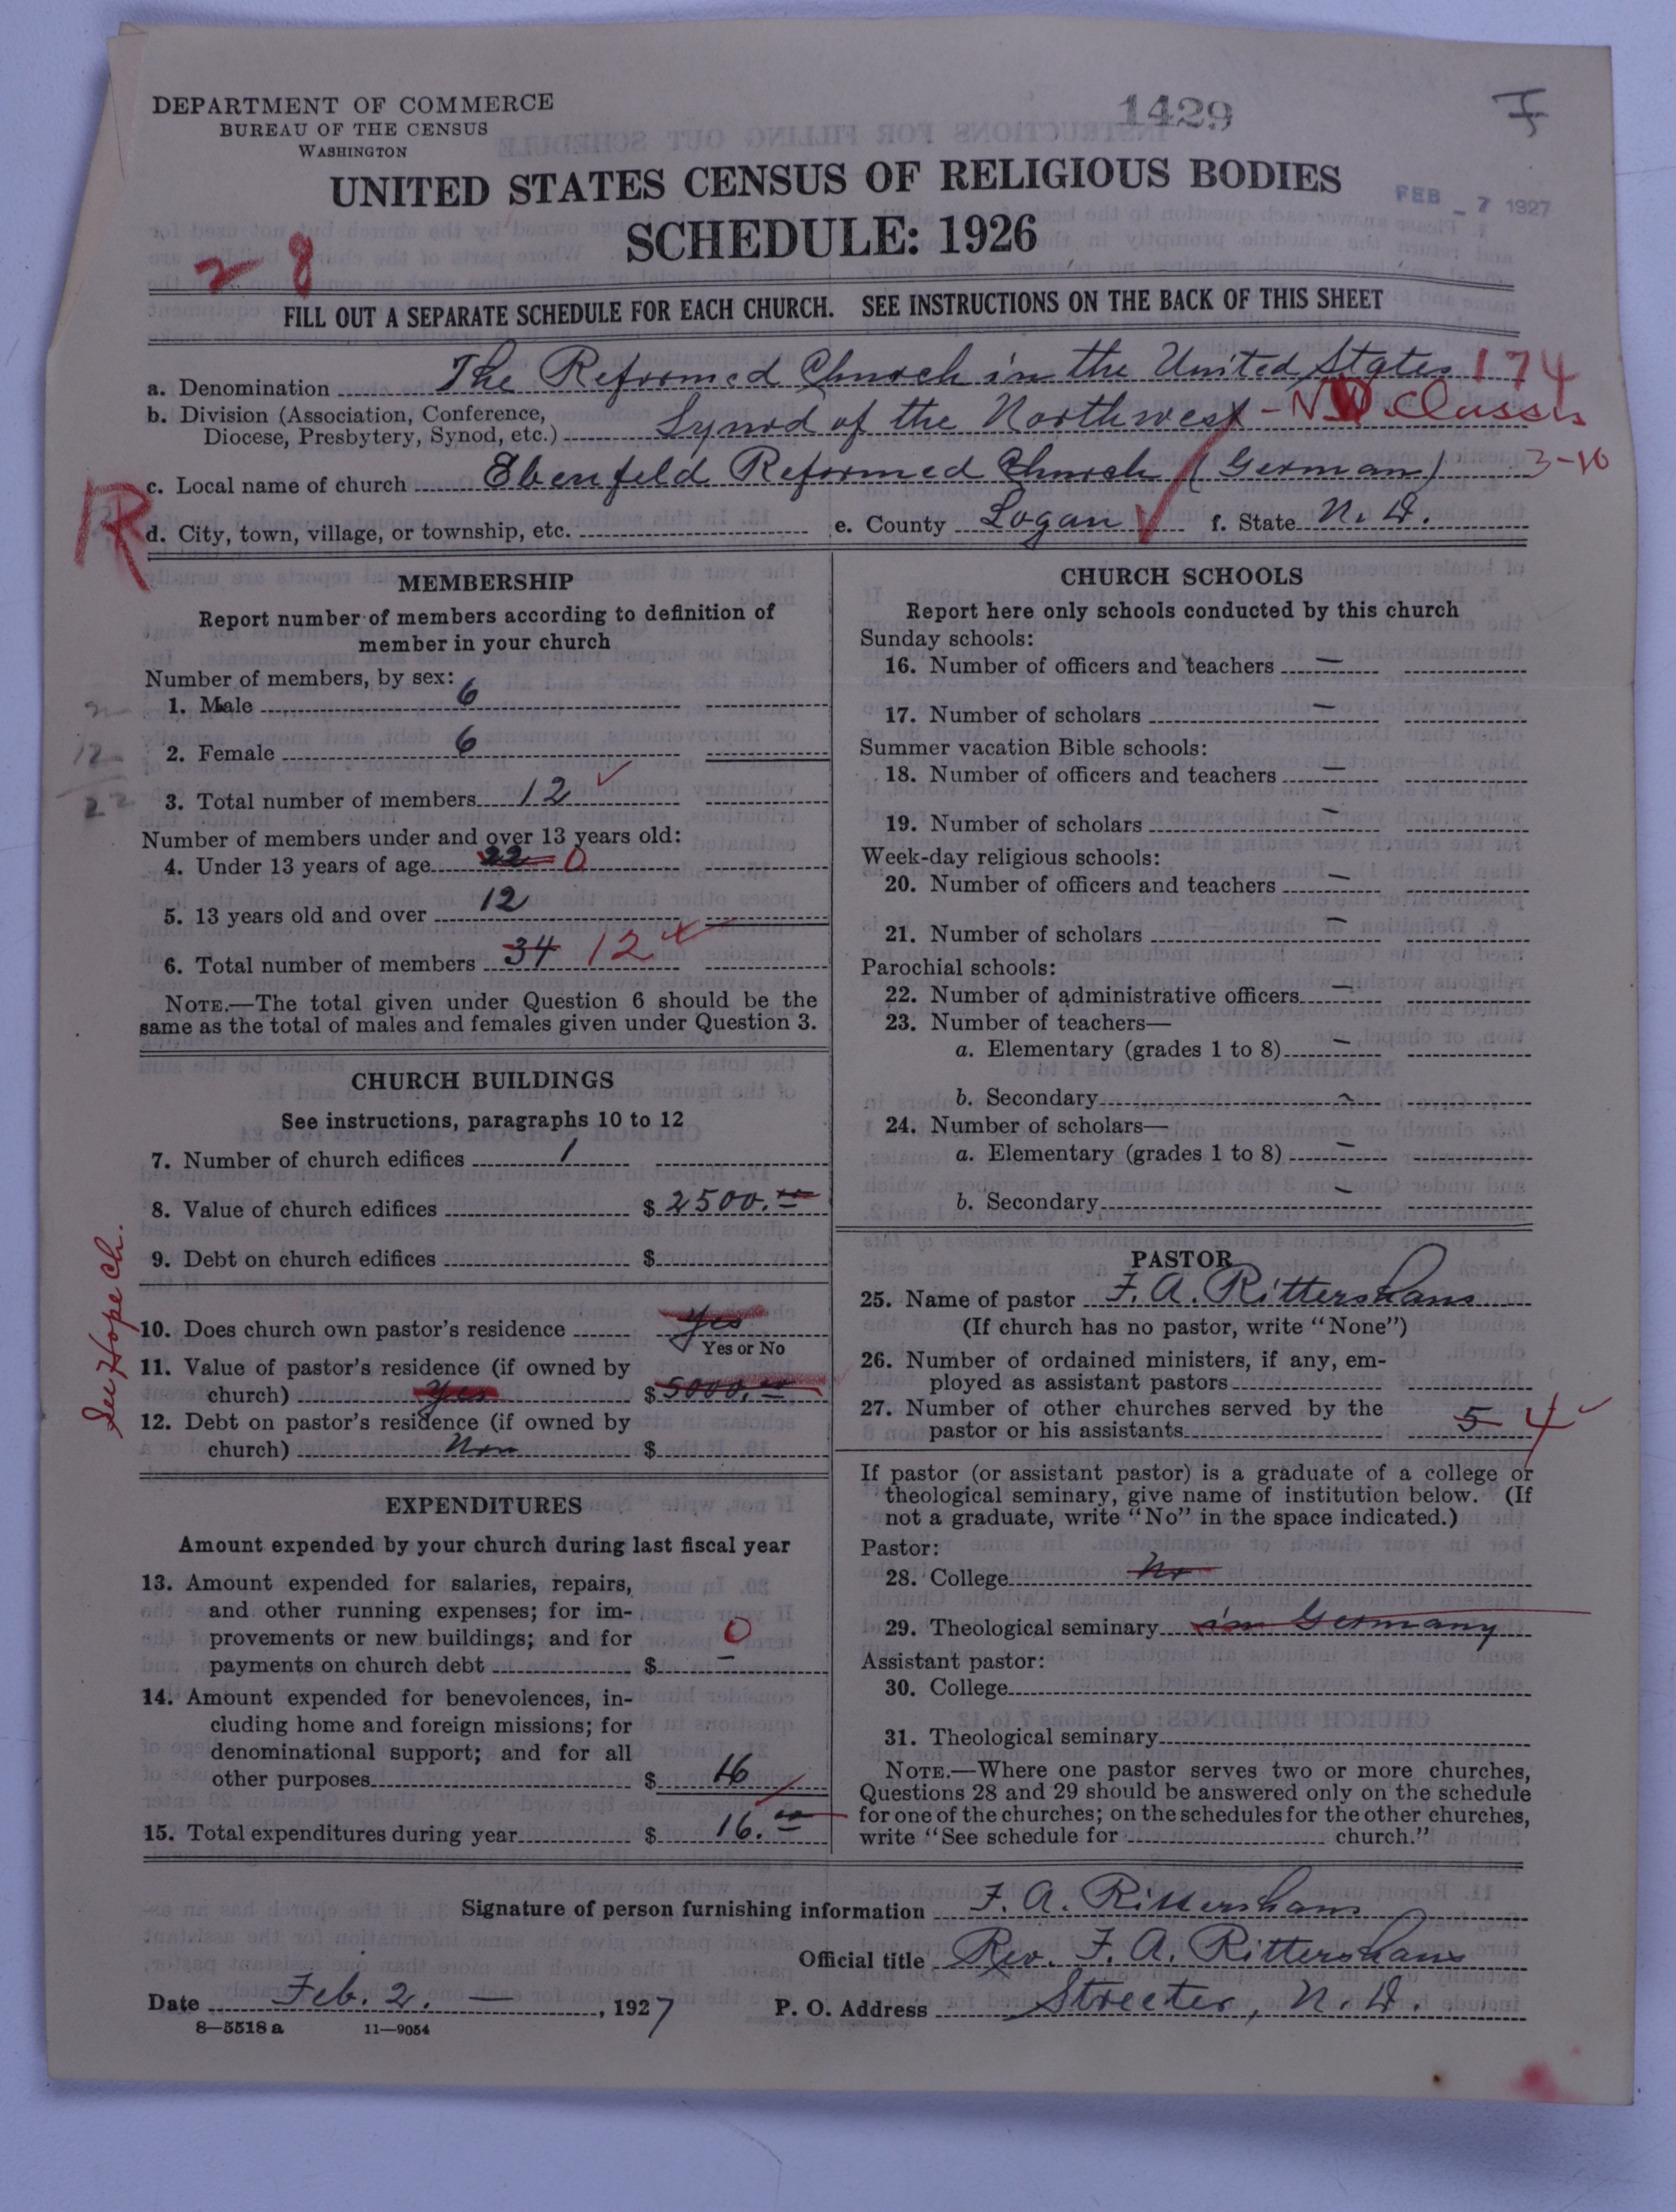 DEPARTMENT OF COMMERCE
BUREAU OF THE CENSUS
WASHINGTON
1429
UNITED STATES CENSUS OF RELIGIOUS BODIES
FEB - 7 1927
SCHEDULE: 1926
2 8
FILL OUT A SEPARATE SCHEDULE FOR EACH CHURCH. SEE INSTRUCTIONS ON THE BACK OF THIS SHEET
a. Denomination The Reformed Church in the United States 174
b. Division (Association, Conference,
Diocese, Presbytery, Synod, etc.) Synod of the Northwest - N.D. Classis
c. Local name of church Ebenfeld Reformed Church (German) 3-10
R
d. City, town, village, or township, etc. e. County Logan f. State N. D.
MEMBERSHIP
Report number of members according to definition of
member in your church
Number of members, by sex:
1. Male 6
2. Female 6
3. Total number of members 12
Number of members under and over 13 years old:
4. Under 13 years of age 22 0
5. 13 years old and over 12
6. Total number of members 34 12
NOTE.—The total given under Question 6 should be the
same as the total of males and females given under Question 3.
CHURCH BUILDINGS
See instructions, paragraphs 10 to 12
7. Number of church edifices 1
8. Value of church edifices $ 2500.00
9. Debt on church edifices $
See Hope Ch.
10. Does church own pastor's residence Yes
Yes or No
11. Value of pastor's residence (if owned by
church) Yes $ 5000.00
12. Debt on pastor's residence (if owned by
church) Non $
EXPENDITURES
Amount expended by your church during last fiscal year
13. Amount expended for salaries, repairs,
and other running expenses; for im-
provements or new buildings; and for 0
payments on church debt $ –
14. Amount expended for benevolences, in-
cluding home and foreign missions; for
denominational support; and for all
other purposes $ 16
15. Total expenditures during year $ 16.00
CHURCH SCHOOLS
Report here only schools conducted by this church
Sunday schools:
16. Number of officers and teachers –
17. Number of scholars –
Summer vacation Bible schools:
18. Number of officers and teachers –
19. Number of scholars –
Week-day religious schools:
20. Number of officers and teachers –
21. Number of scholars –
Parochial schools:
22. Number of administrative officers –
23. Number of teachers—
a. Elementary (grades 1 to 8) –
b. Secondary –
24. Number of scholars—
a. Elementary (grades 1 to 8) –
b. Secondary –
PASTOR
25. Name of pastor F. A. Rittershaus
(If church has no pastor, write "None")
26. Number of ordained ministers, if any, em-
ployed as assistant pastors
27. Number of other churches served by the
pastor or his assistants 5 4
If pastor (or assistant pastor) is a graduate of a college or
theological seminary, give name of institution below. (If
not a graduate, write "No" in the space indicated.)
Pastor:
28. College No
29. Theological seminary in Germany
Assistant pastor:
30. College
31. Theological seminary
NOTE.—Where one pastor serves two or more churches,
Questions 28 and 29 should be answered only on the schedule
for one of the churches; on the schedules for the other churches,
write "See schedule for church."
Signature of person furnishing information F. A. Rittershaus
Official title Rev. F. A. Rittershaus
Date Feb. 2. —, 1927 P. O. Address Streeter, N. D.
8—5518 a 11—9054